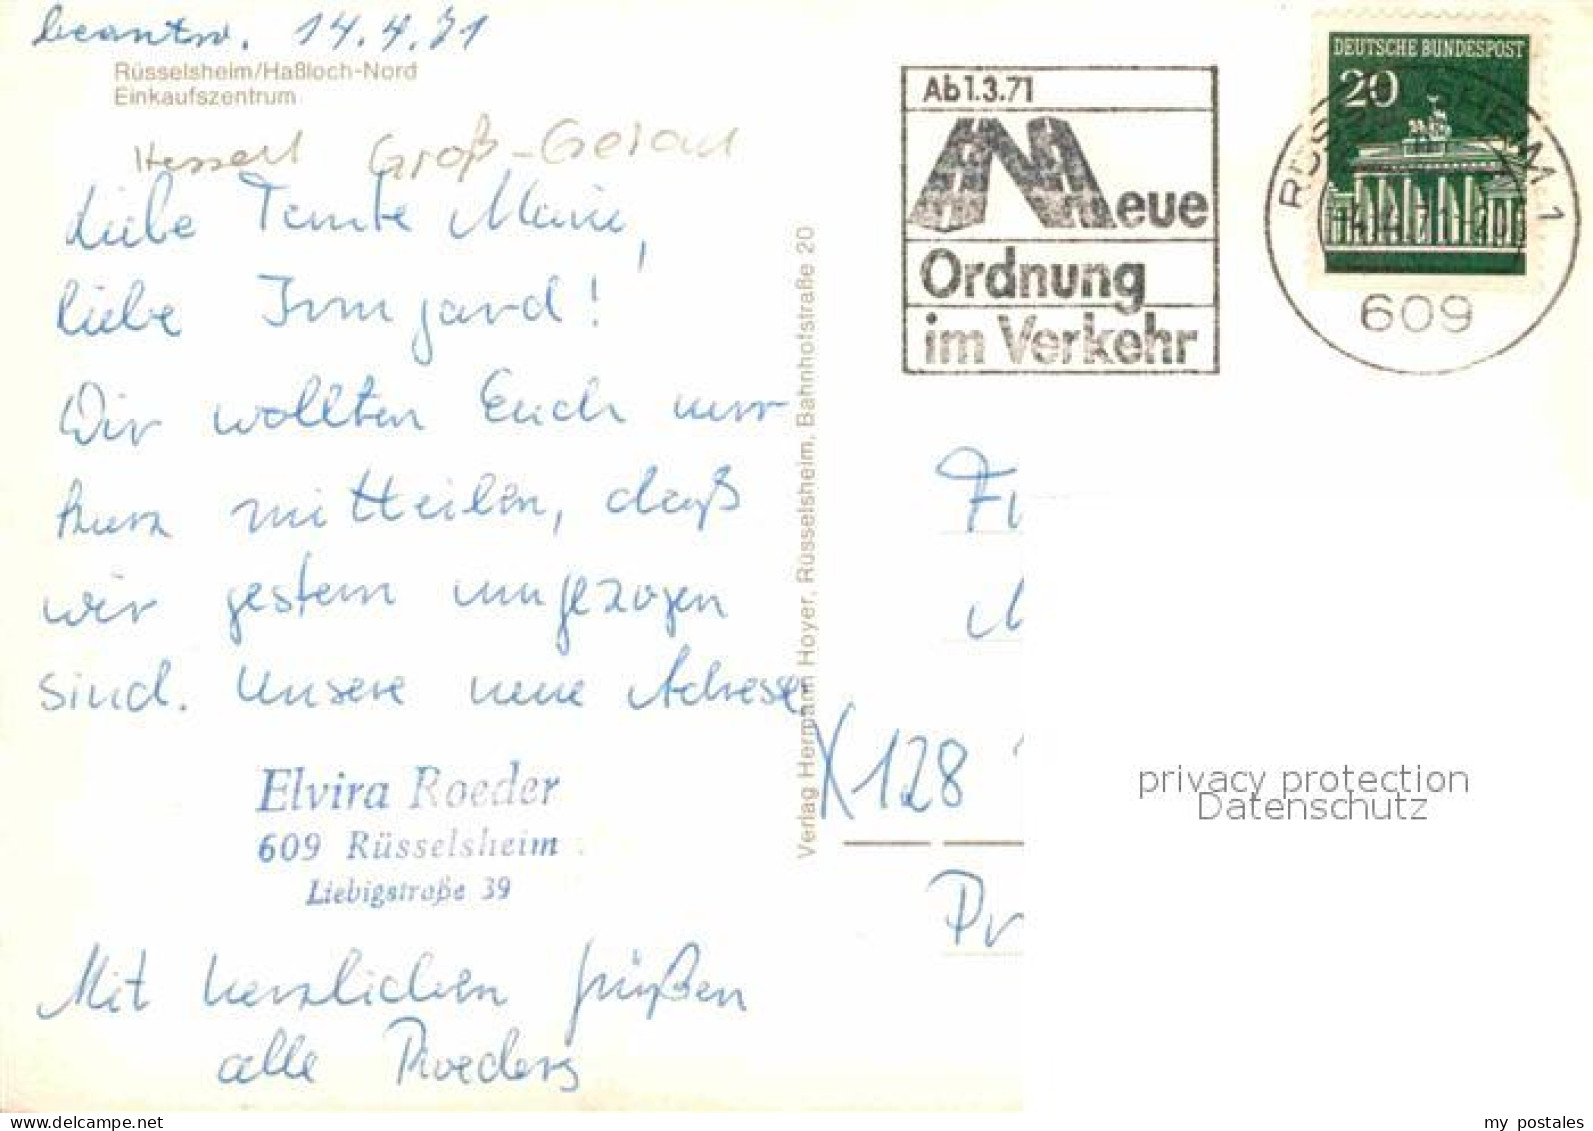 beantw. 14.4.71
Rüsselsheim/Haßloch-Nord
Einkaufszentrum
Groß-Gerau
Liebe Tante Marie,
liebe Irmgard!
Wir wollten Euch nur
kurz mitteilen, daß
wir gestern umgezogen
sind. Unsere neue Adresse
Elvira Roeder
609 Rüsselsheim
Liebigstraße 39
Mit herzlichen Grüßen
alle Roeders
Verlag Hermann Hoyer, Rüsselsheim, Bahnhofstraße 20
Ab 1.3.71
Neue
Ordnung
im Verkehr
DEUTSCHE BUNDESPOST
20
RÜSSELSHEIM 1
609
X128
privacy protection
Datenschutz
my postales